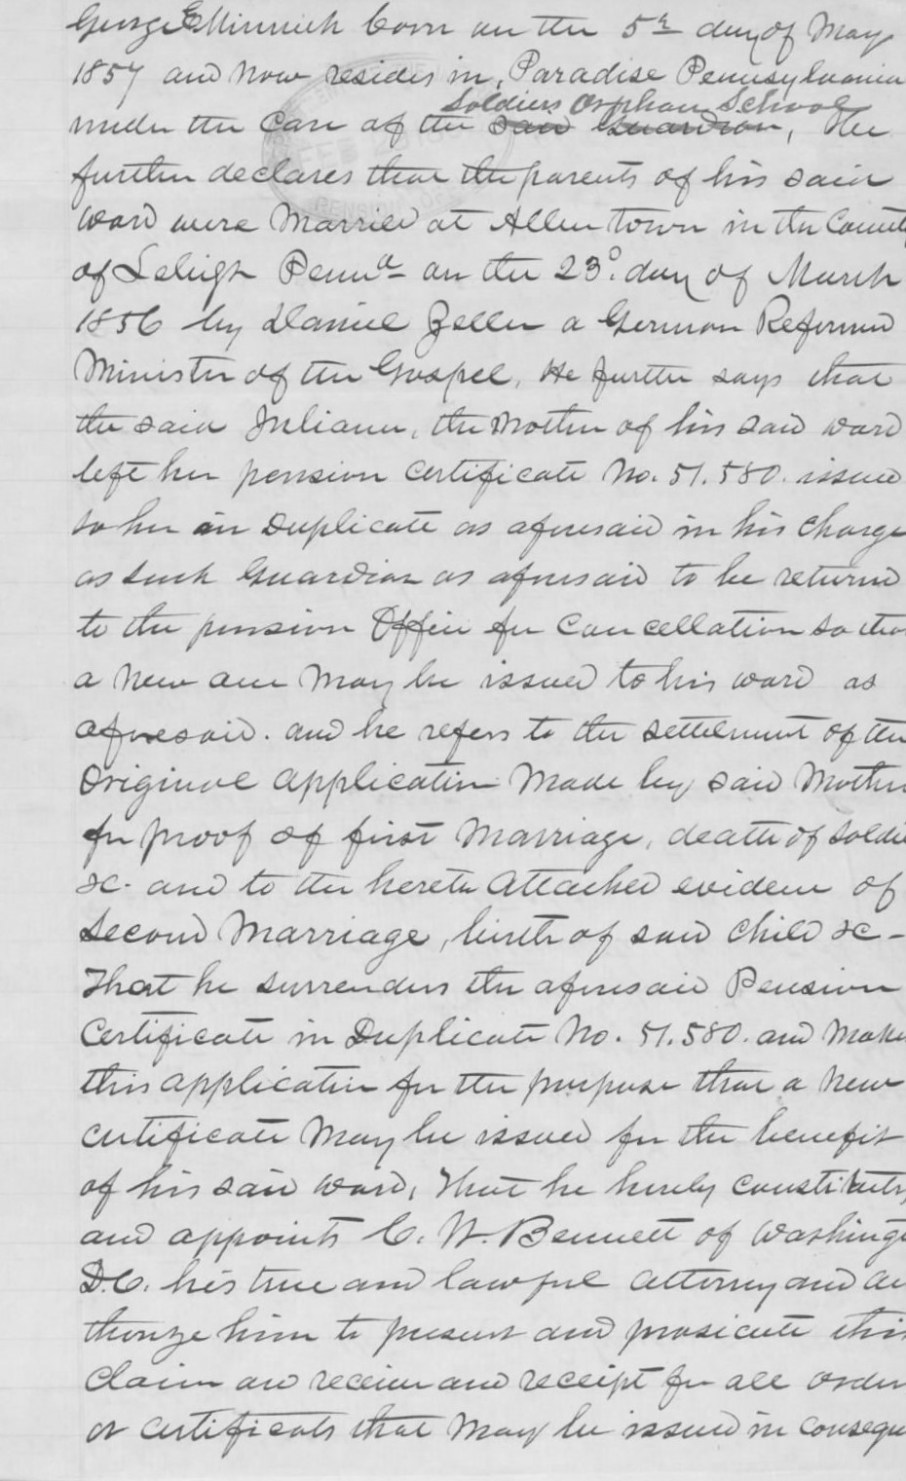 George E Minnich born on the 5th day of May
1857 and now resides in Paradise Pennsylvania
Soldiers Orphan School
under the care of the said Guardian, He
further declares that the parents of his said
ward were Married at Allentown in the County
of Lehigh Penna on the 23d. day of March
1856 by Daniel Zeller a German Reformed
Minister of the Gospel. He further says that
the said Juliann, the Mother of his said ward
left her pension certificate No. 51.580. issued
to her in Duplicate as aforesaid in his charge
as such Guardian as aforesaid to be returned
to the pension Office for Cancellation so that
a New one May be issued to his ward as
aforesaid. and he refers to the settlement of the
Original application Made by said Mother
for proof of first Marriage, death of soldie
&c. and to the hereto Attached evidence of
Second Marriage, birth of said Child &c -
That he surrenders the aforesaid Pension
Certificate in Duplicate No. 51.580. and Make
this application for the purpose that a New
certificate May be issued for the benefit
of his said ward, That he hereby constitutes
and appoints C. W. Bennett of Washingt
D.C. his true and lawful attorney and au
thorize him to present and prosicute this
Claim and receive and receipt for all order
or certificats that May be issued in consequ